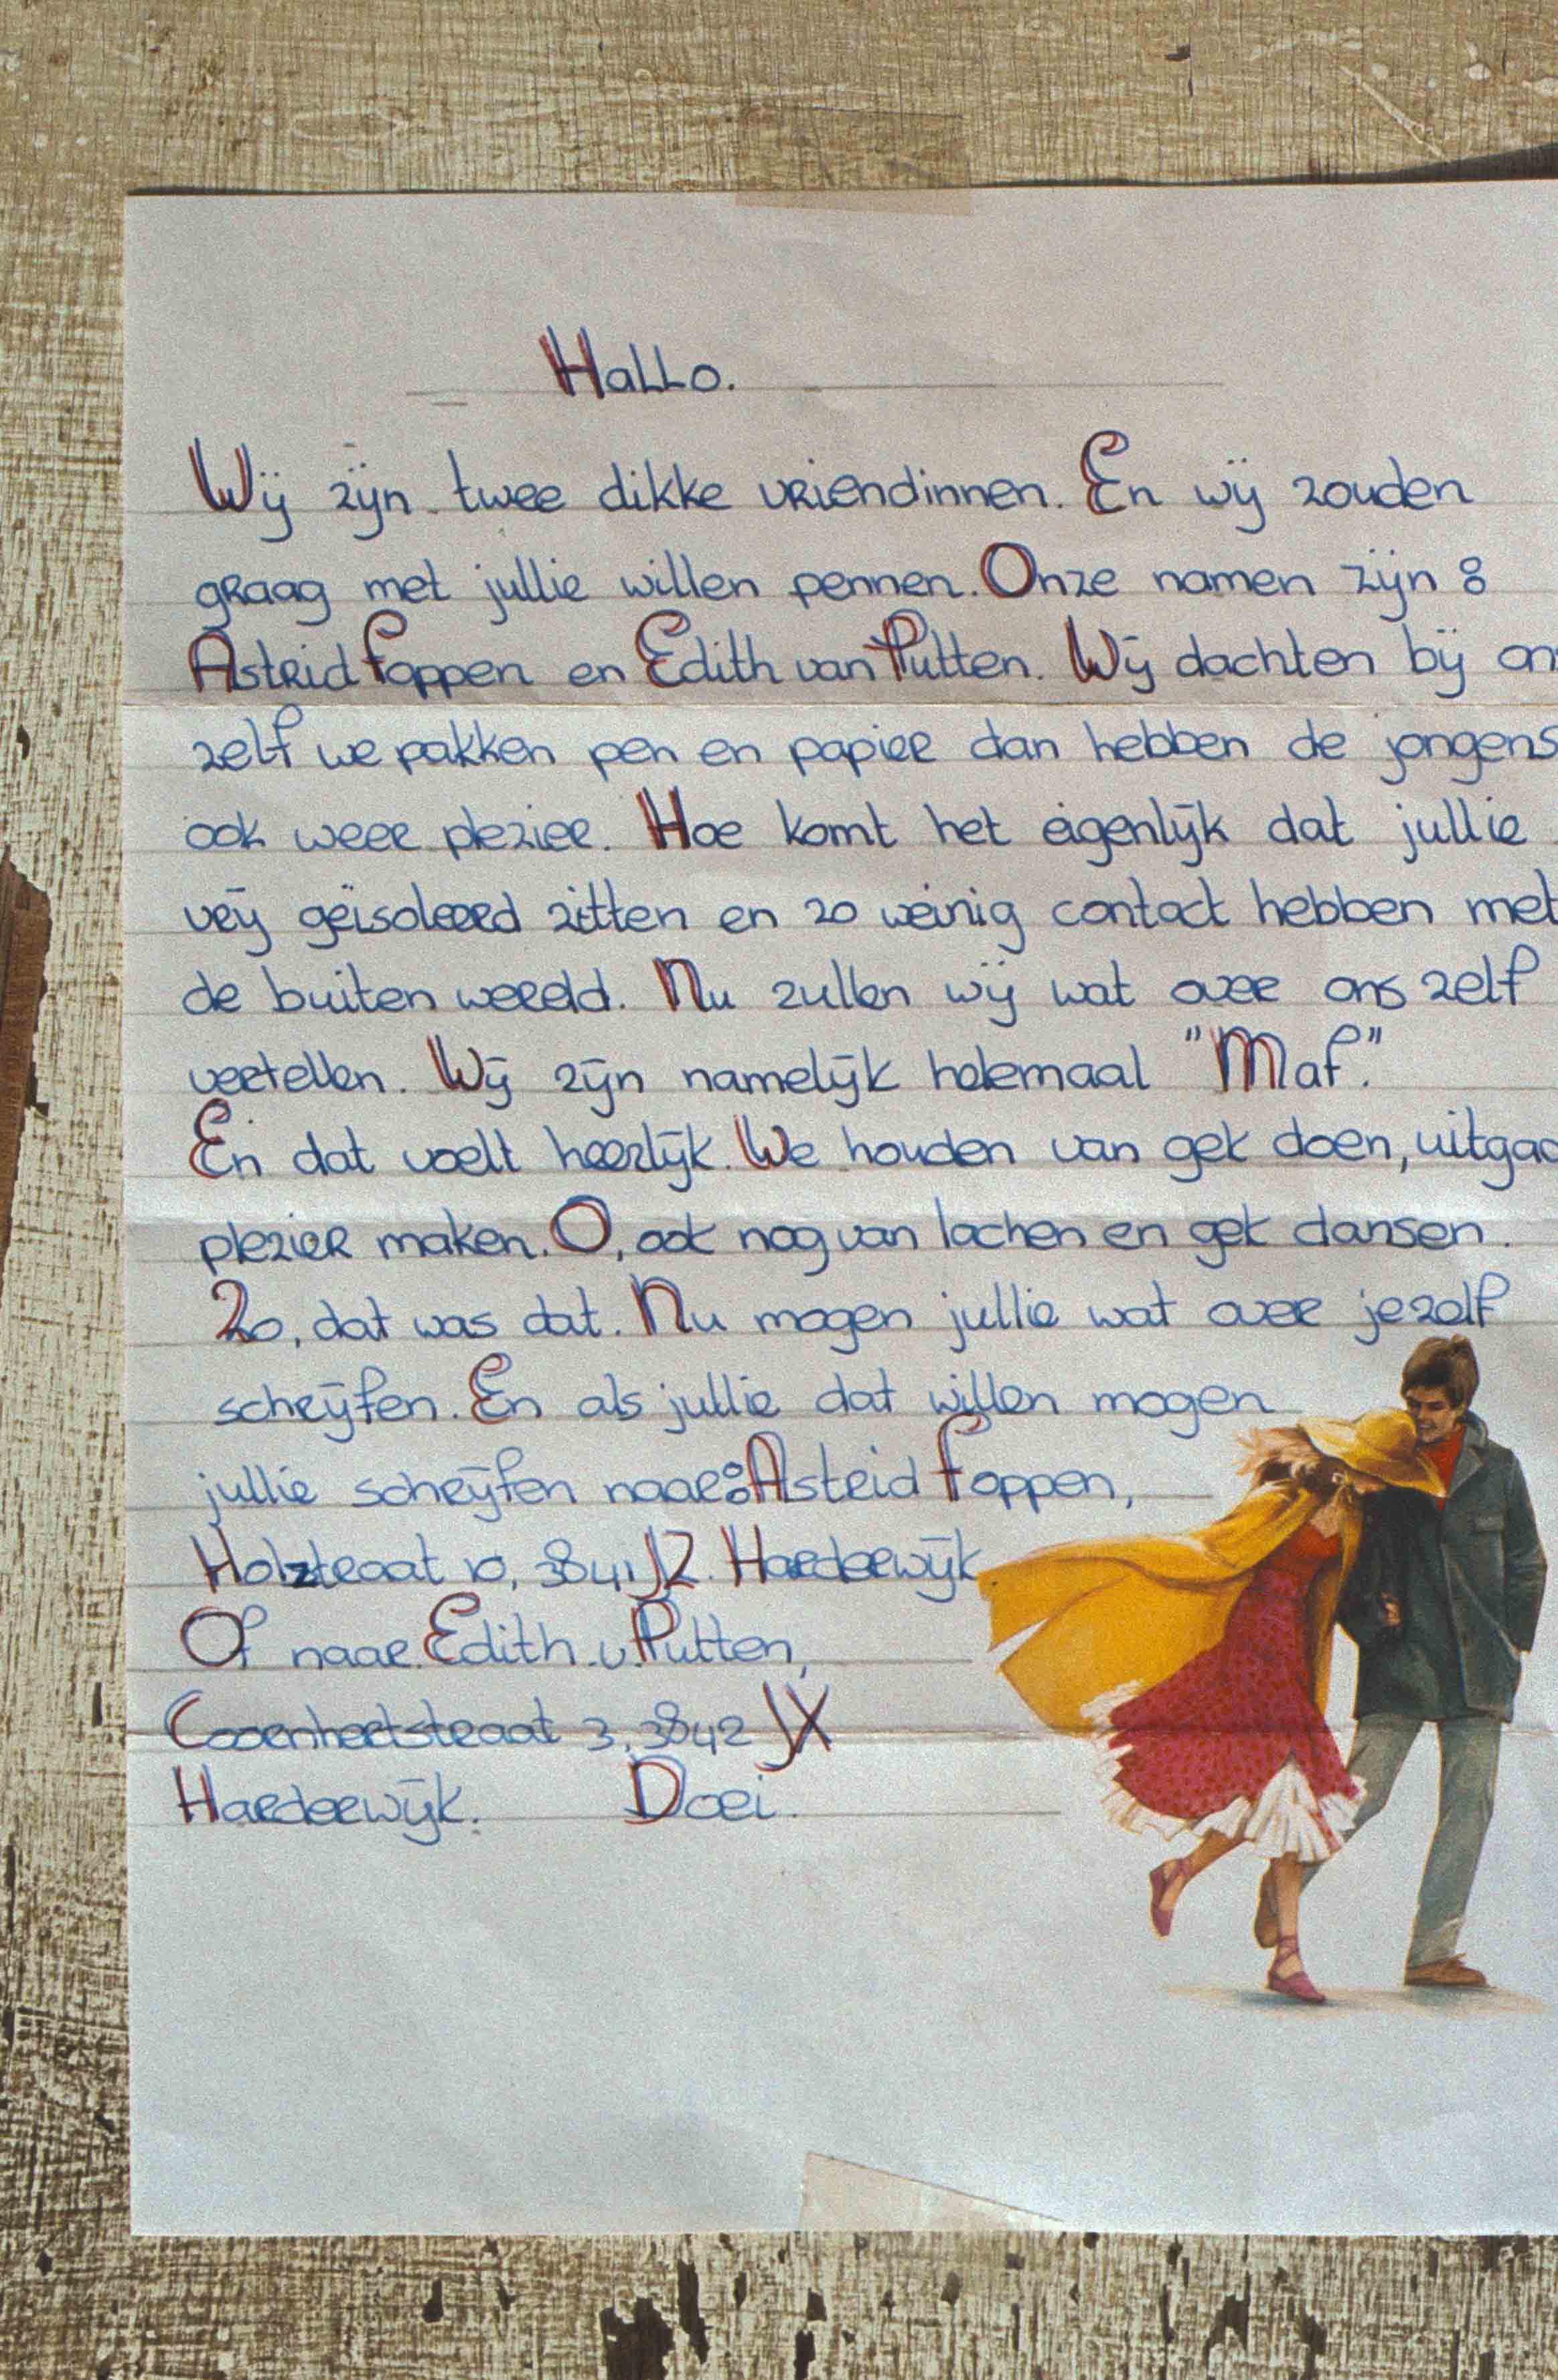 Hallo.
Wij zijn twee dikke vriendinnen. En wij zouden
graag met jullie willen pennen. Onze namen zijn:
Astrid Foppen en Edith van Putten. Wij dachten bij on
zelf we pakken pen en papier dan hebben de jongens
ook weer plezier. Hoe komt het eigenlijk dat jullie
vrij geïsoleerd zitten en zo weinig contact hebben met
de buiten wereld. Nu zullen wij wat over ons zelf
vertellen. Wij zijn namelijk helemaal "Maf."
En dat voelt heerlijk. We houden van gek doen, uitgaa
plezier maken. O, ook nog van lachen en gek dansen.
Zo, dat was dat. Nu mogen jullie wat over jezelf
schrijfen. En als jullie dat willen mogen
jullie schrijfen naar: Astrid Foppen,
Holzteraat 10, 3841 JZ. Harderwijk
Of naar Edith v. Putten,
Coornhertstraat 3, 3842 JX
Harderwijk. Doei.